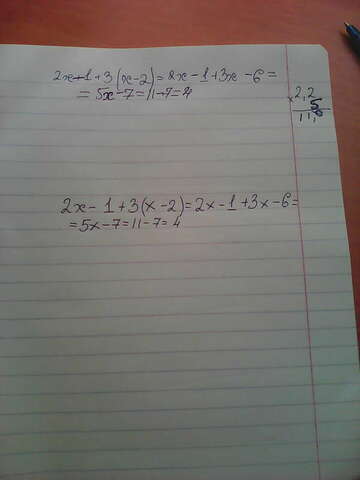 2x-1+3(x-2)=2x-1+3x-6=
=5x-7=11-7=4
×2,2
5
11,0
2x-1+3(x-2)=2x-1+3x-6=
=5x-7=11-7=4